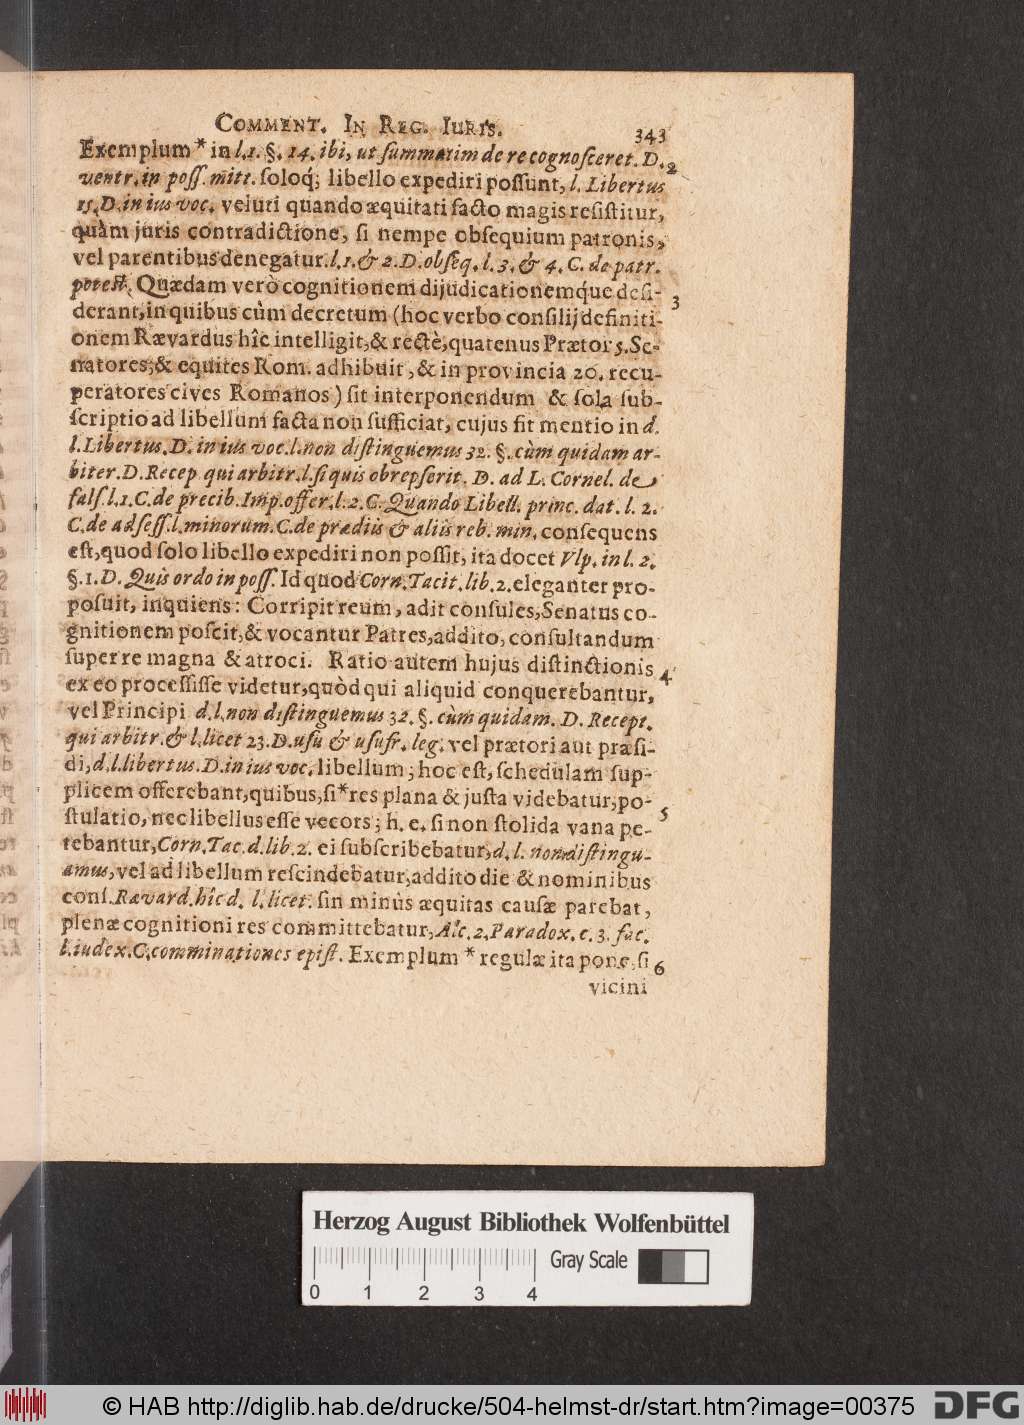 COMMENT. IN REG. IURIS. 343
Exemplum * in l. 1. §. 14. ibi, ut summatim de re cognosceret. D. 2
ventr. in poss. mitt. soloq́; libello expediri possunt, l. Libertus
15. D. in ius voc. veluti quando æquitati facto magis resistitur,
quàm juris contradictione, si nempe obsequium patronis,
vel parentibus denegatur. l. 1. & 2. D. obseq. l. 3. & 4. C. de patr.
potest. Quædam verò cognitionem dijudicationemque desi- 3
derant, in quibus cùm decretum (hoc verbo consilij definiti-
onem Rævardus hîc intelligit, & rectè, quatenus Prætor 5. Se-
natores, & equites Rom. adhibuit, & in provincia 20. recu-
peratores cives Romanos) sit interponendum & sola sub-
scriptio ad libellum facta non sufficiat, cujus fit mentio in d.
l. Libertus. D. in ius voc. l. non distinguemus 32. §. cùm quidam ar-
biter. D. Recep qui arbitr. l. si quis obrepserit. D. ad L. Cornel. de
fals. l. 1. C. de precib. Imp. offer. l. 2. C. Quando Libell. princ. dat. l. 2.
C. de adsess. l. minorum. C. de prædiis & aliis reb. min. consequens
est, quod solo libello expediri non possit, ita docet Vlp. in l. 2.
§. 1. D. Quis ordo in poss. Id quod Corn. Tacit. lib. 2. eleganter pro-
posuit, inquiens: Corripit reum, adit consules, Senatus co-
gnitionem poscit, & vocantur Patres, addito, consultandum
super re magna & atroci. Ratio autem hujus distinctionis 4
ex eo processisse videtur, quòd qui aliquid conquerebantur,
vel Principi d. l. non distinguemus 32. §. cùm quidam. D. Recept.
qui arbitr. & l. licet 23. D. usu & usufr. leg. vel prætori aut præsi-
di, d. l. libertus. D. in ius voc. libellum; hoc est, schedulam sup-
plicem offerebant, quibus, si * res plana & justa videbatur, po- 5
stulatio, nec libellus esse vecors; h. e. si non stolida vana pe-
tebantur, Corn. Tac. d. lib. 2. ei subscribebatur, d. l. non distingu-
amus, vel ad libellum rescindebatur, addito die & nominibus
cons. Rævard. hîc d. l. licet. sin minùs æquitas causæ parebat,
plenæ cognitioni res committebatur, Alc. 2. Paradox. c. 3. fac.
l. iudex. C. comminationes epist. Exemplum * regulæ ita pone, si 6
vicini
Herzog August Bibliothek Wolfenbüttel
Gray Scale
0 1 2 3 4
© HAB http://diglib.hab.de/drucke/504-helmst-dr/start.htm?image=00375
DFG